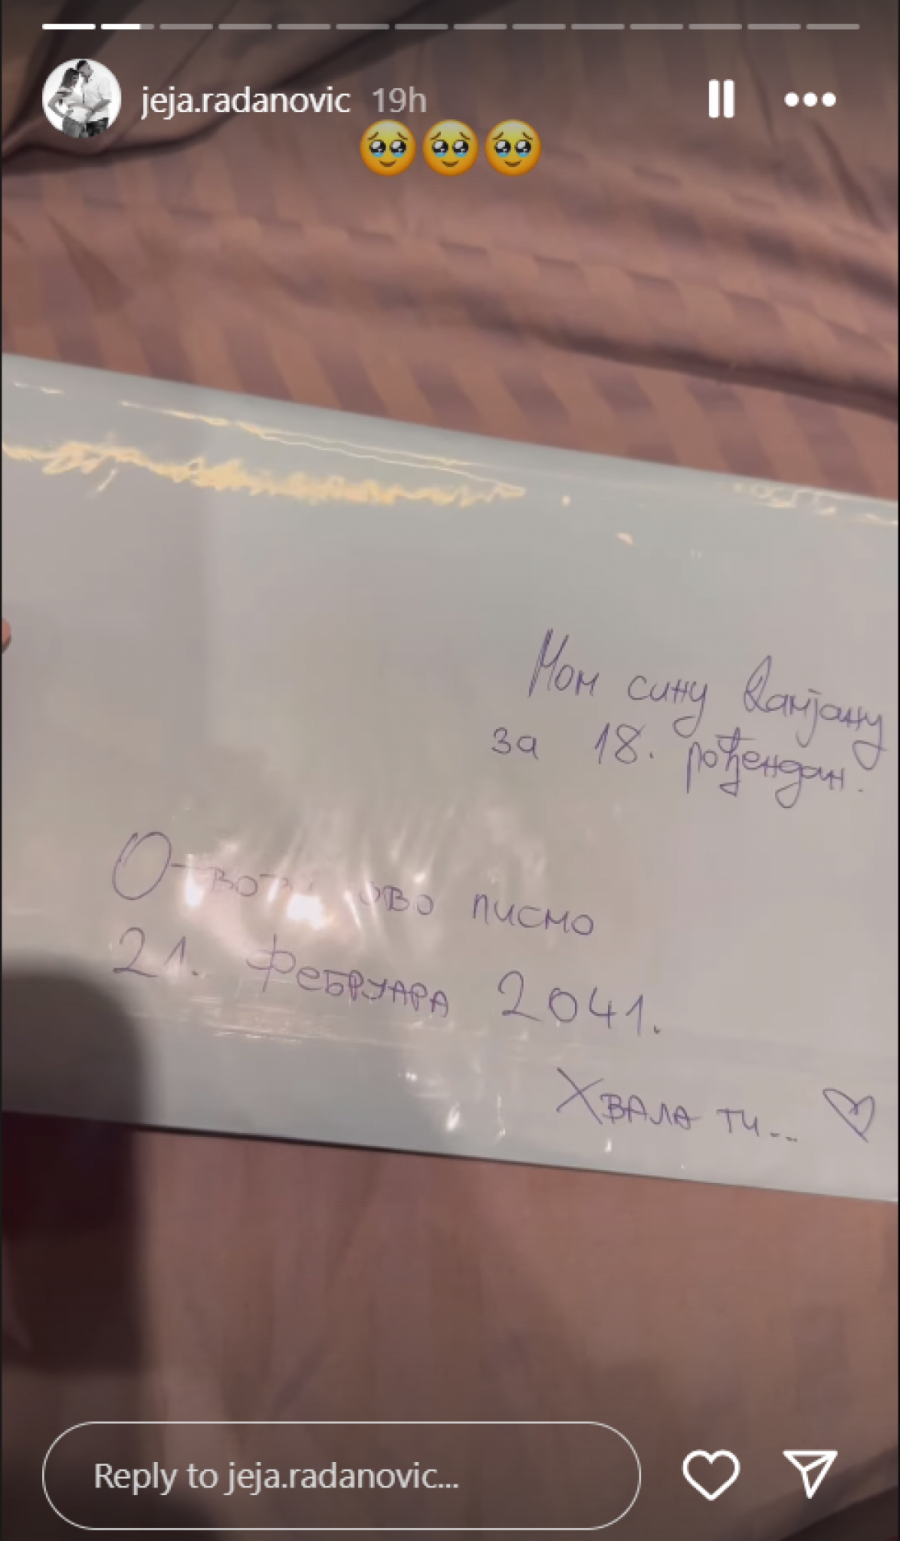 jeja.radanovic 19h
🥹🥹🥹
Мом сину Дамјану
за 18. рођендан.
Отвори ово писмо
21. Фебруара 2041.
Хвала ти... ♡
Reply to jeja.radanovic...